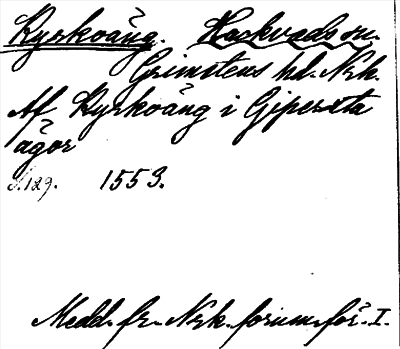 Kyrkoäng. Hackvads sn.
Grimstens hd. Nrk.
Af Kyrkoäng i Gipersta
ägor
S. 129. 1553.
Medd. fr. Nrk. fornm. för. I.